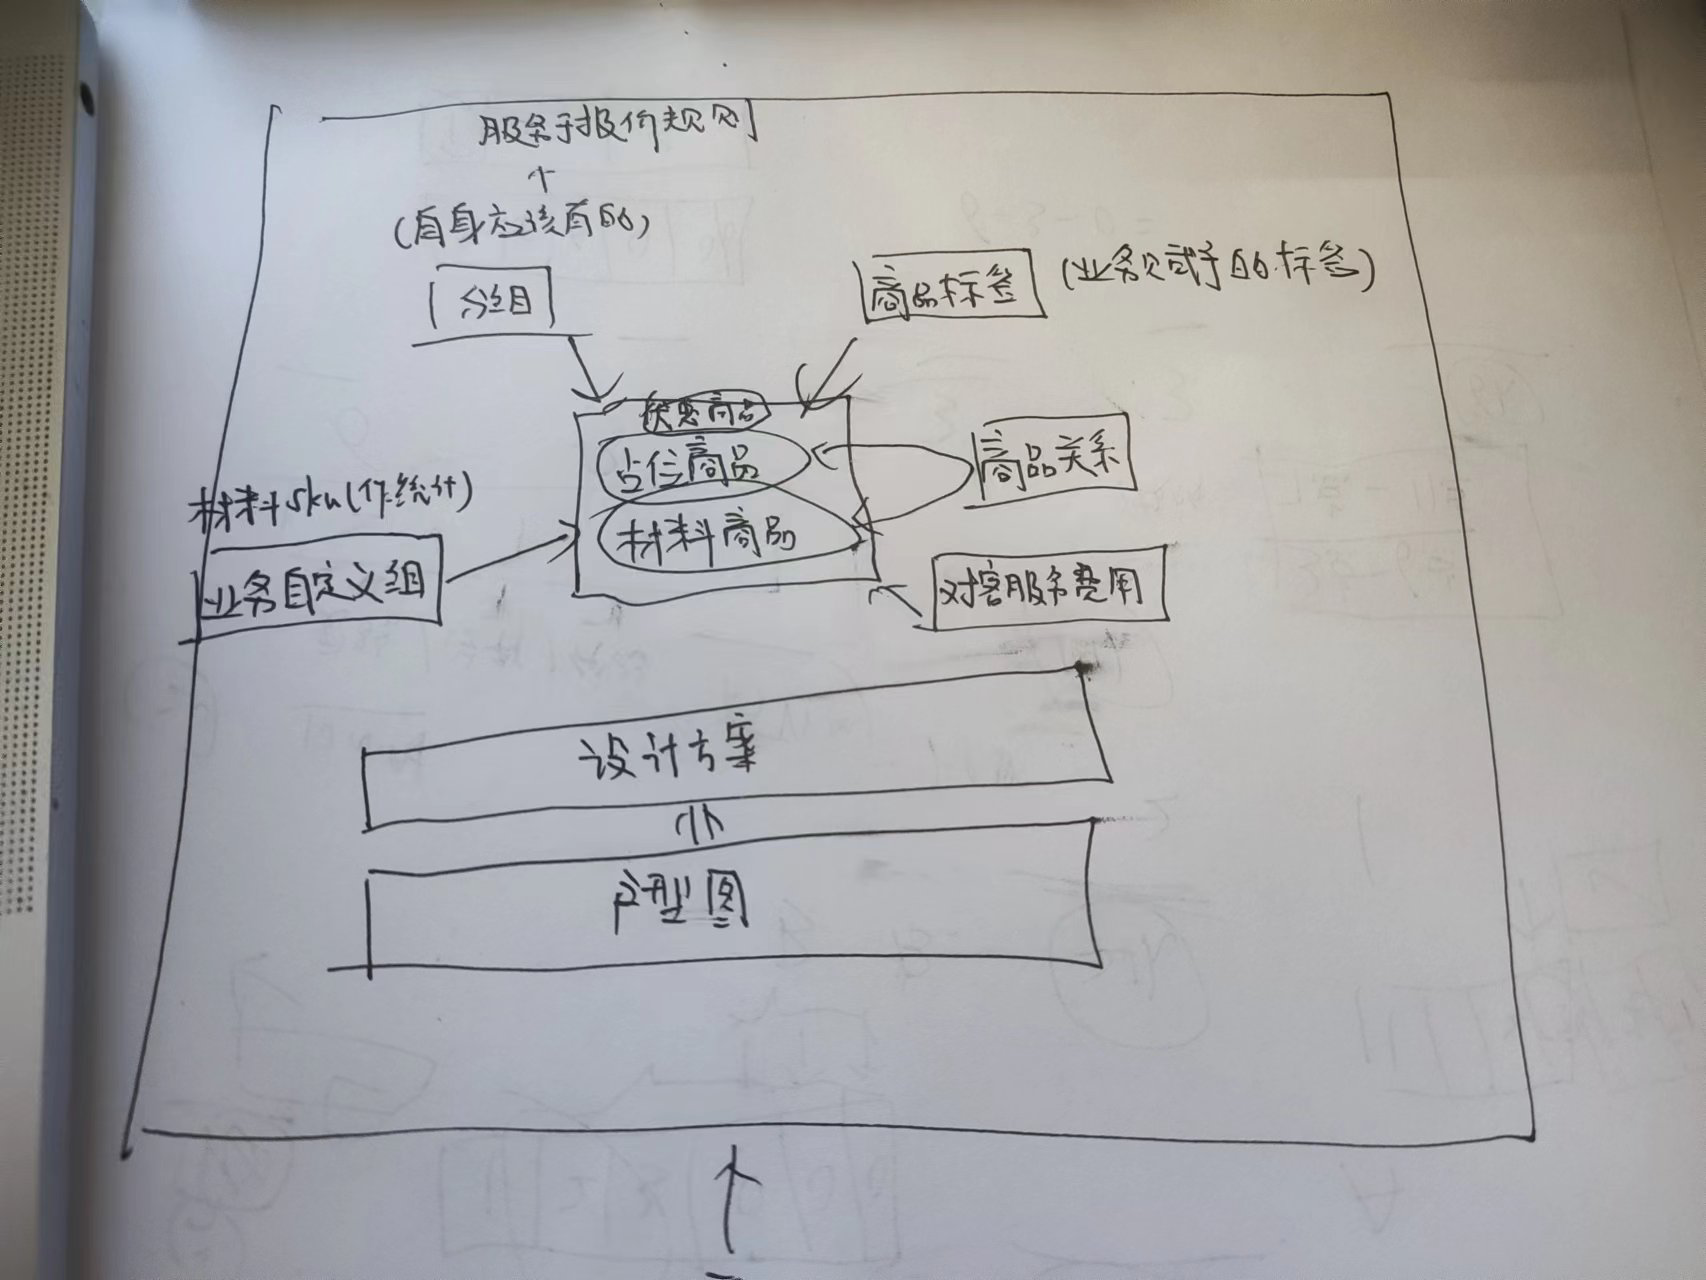 服务于报价规则
+
(自身应该有的)
分组
商品标签
(业务赋予的标签)
优惠商品
占位商品
商品关系
材料sku(作统计)
材料商品
业务自定义组
对客服务费用
设计方案
户型图